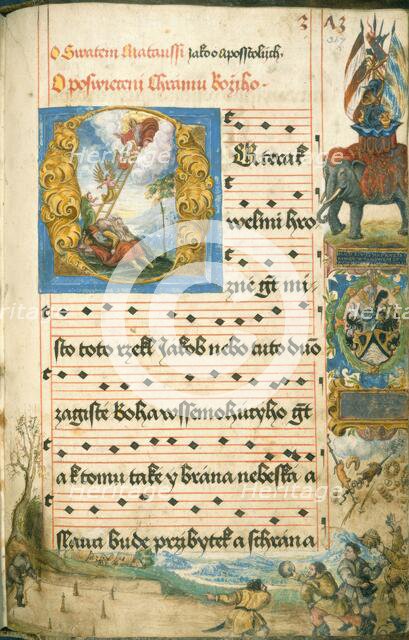 3 A3
O Swatem Mataussi jako o aposstolijch.
O poswieceni Chramu Bozijho.
welmi hro
zne gt mi
sto toto rzekl Jakob nebo tuto duo
zagiste boha wssemohucyho gt
a k tomu take y brána nebeska a
slawa bude przybytek a schrana
Heritage
Heritage
Heritage
Heritage
Heritage
Heritage